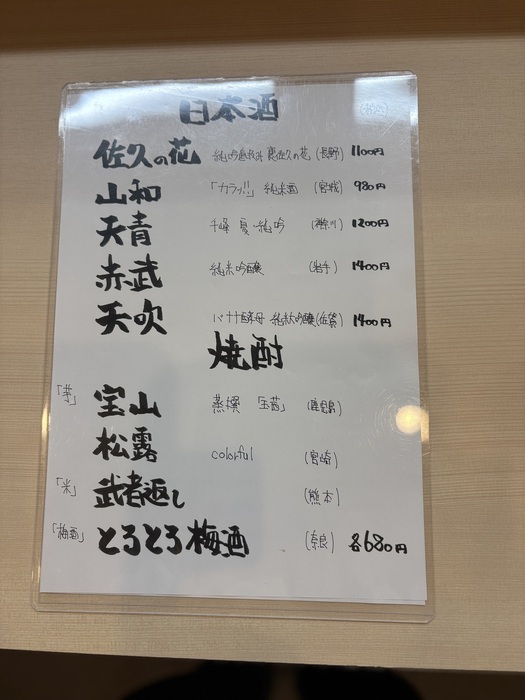 日本酒
佐久の花 純吟 裏佐久の花 (長野) 1100円
山和 「カラッ!!」 純米酒 (宮城) 980円
天青 千峰 夏・純吟 (神奈川) 1200円
赤武 純米吟醸 (岩手) 1400円
天吹 バナナ酵母 純米大吟醸 (佐賀) 1400円
焼酎
「芋」 宝山 蒸撰 「玉茜」 (鹿児島)
松露 colorful (宮崎)
「米」 武者返し (熊本)
「梅酒」 とろとろ梅酒 (奈良) 各680円